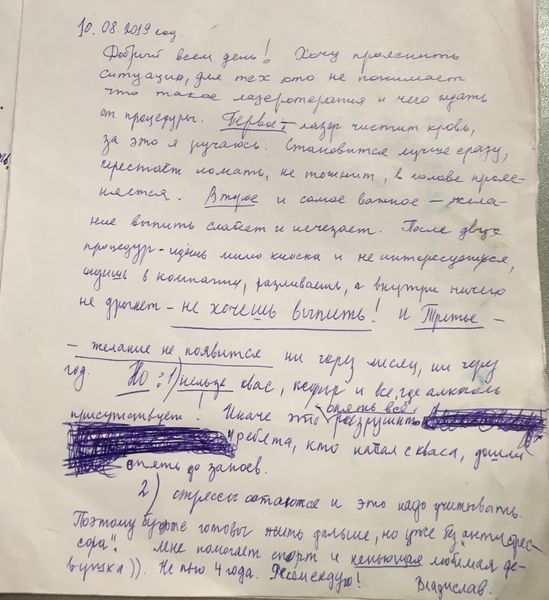 10.08.2019 год.
Добрый всем день! Хочу прояснить
ситуацию, для тех кто не понимает
что такое лазеротерапия и чего ждать
от процедуры. Первое, лазер чистит кровь,
за это я ручаюсь. Становится лучше сразу,
перестаёт ломать, не тошнит, в голове прояс-
няется. Второе и самое важное – жела-
ние выпить слабеет и исчезает. После двух
процедур – идёшь мимо киоска и не интересуешься,
сидишь в компании, разливаешь, а внутри ничего
не дрогнет – не хочешь выпить! И Третье –
– желание не появится ни через месяц, ни через
год. Но: 1) нельзя квас, кефир и все, где алкоголь
присутствует. Иначе это опять всё разрушит
ребята, кто начал с кваса, дошли
опять до запоев.
2) стрессы остаются и это надо учитывать.
Поэтому будьте готовы жить дальше, но уже без "антидепрес-
сора". Мне помогает спорт и непьющая любимая де-
вушка)). Не пью 4 года. Рекомендую!
Владислав.